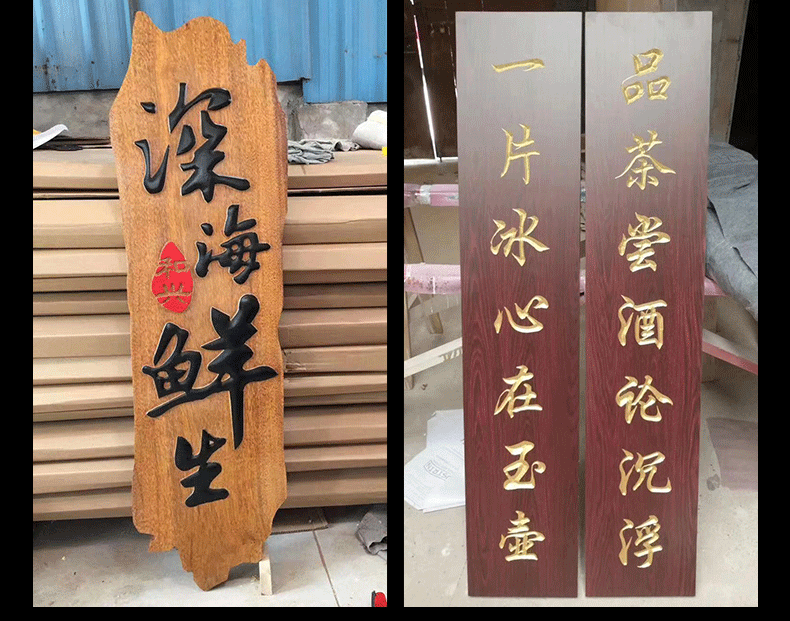 深海鲜生
和兴
品茶尝酒论沉浮
一片冰心在玉壶